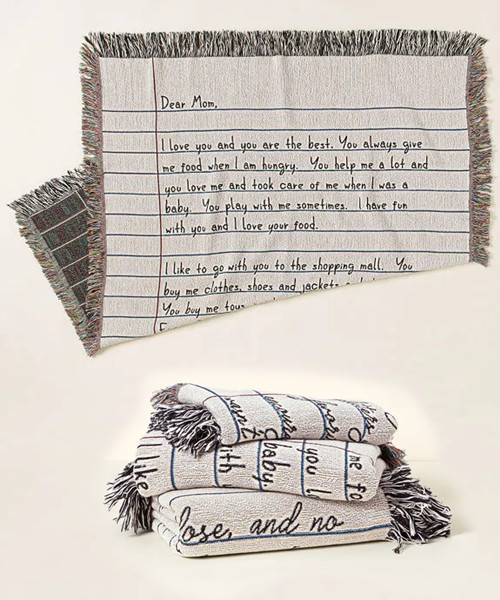 Dear Mom,
I love you and you are the best. You always give
me food when I am hungry. You help me a lot and
you love me and took care of me when I was a
baby. You play with me sometimes. I have fun
with you and I love your food.
I like to go with you to the shopping mall. You
buy me clothes, shoes and jackets
You buy me toys
you
me to
with
baby.
like
lose, and no